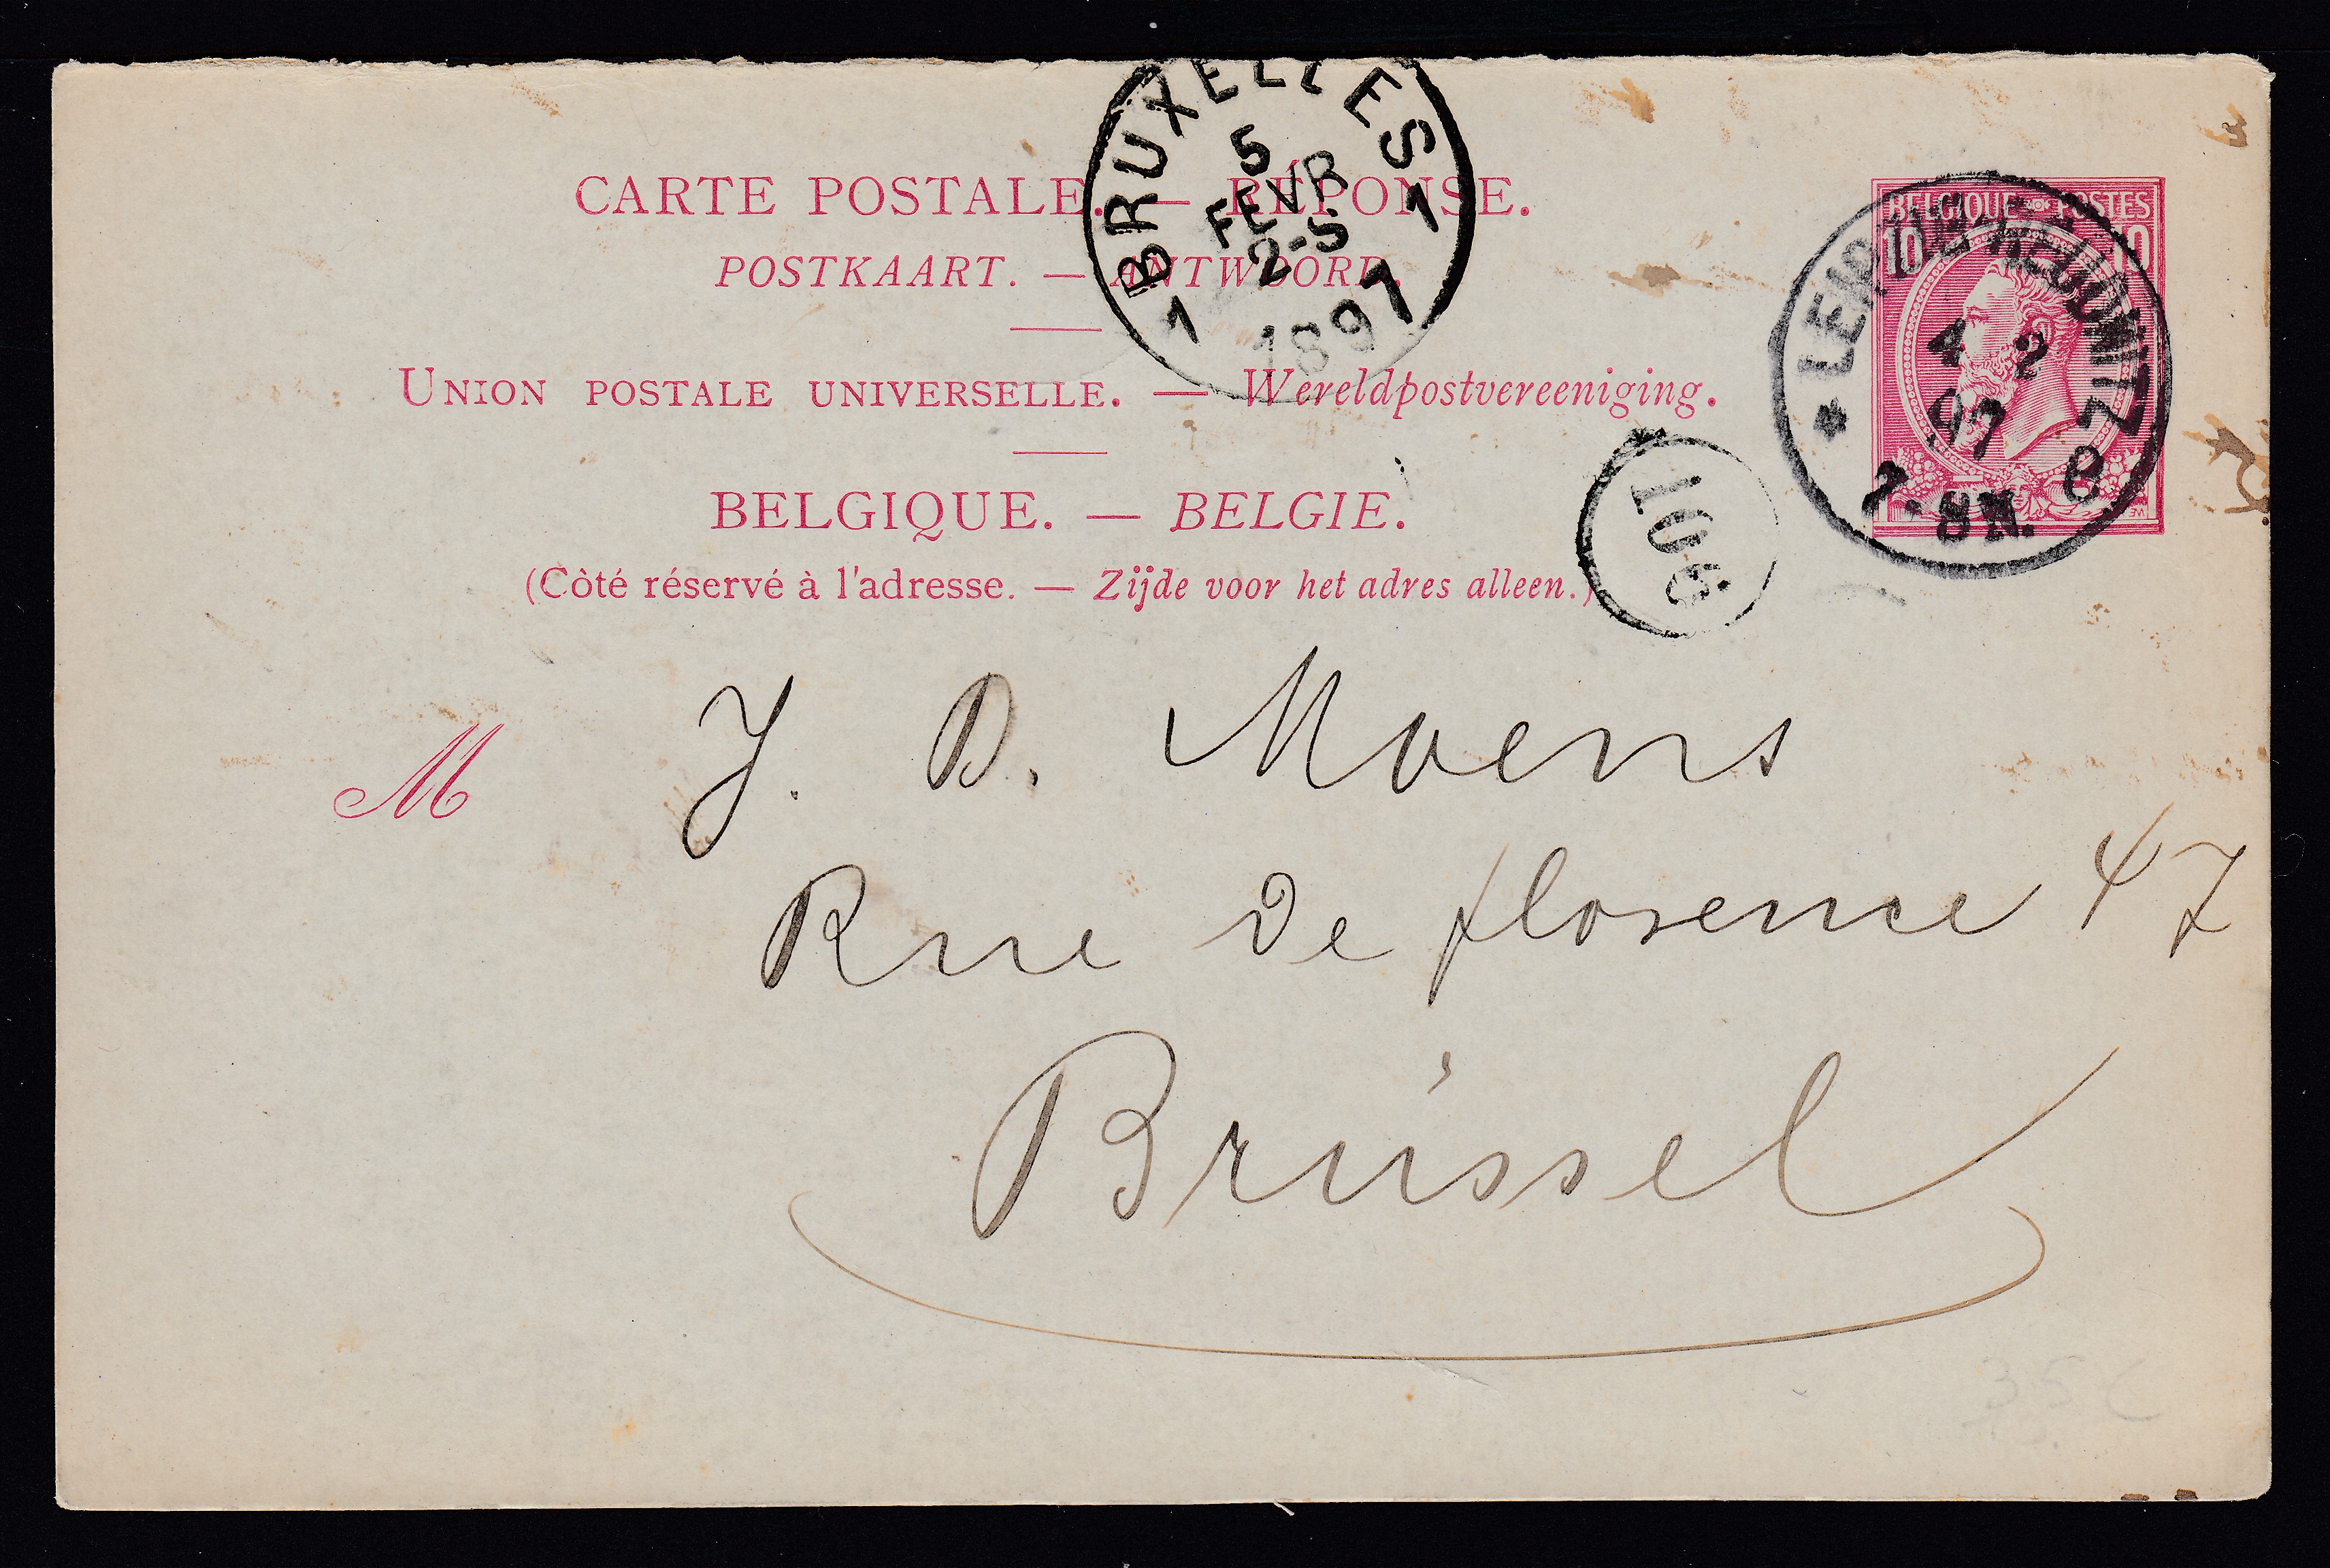 CARTE POSTALE. — RÉPONSE.
POSTKAART. — ANTWOORD.
UNION POSTALE UNIVERSELLE. — Wereldpostvereeniging.
BELGIQUE. — BELGIE.
(Côté réservé à l'adresse. — Zijde voor het adres alleen.)
BRUXELLES
5
FEVR
2-5
1 1897 1
BELGIQUE POSTES
10 10
* LEIPZIG-REUDNITZ
4 2
97
7-8N. e
106
M J. B. Moens
Rue de florence 47
Brüssel
35 C